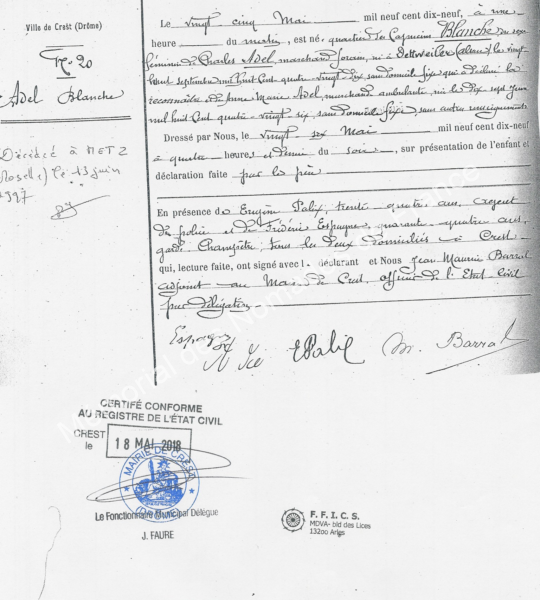 Ville de Crest (Drôme)
N.º 20
Adel Blanche
Décédée à METZ
(Moselle) le 13 juin
1997
Le vingt cinq Mai mil neuf cent dix-neuf, à une
heure du matin, est né, quartier des Capucins Blanche du sexe
féminin de Charles Adel, marchand forain, né à Dettweiler (Alsace) le vingt
sept mil huit cent quatre vingt dix sans domicile fixe qui a déclaré la
reconnaître et de Marie Adel, marchande ambulante, née le dix sept
mil huit cent quatre-vingt-six sans domicile fixe, sans autres renseignements
Dressé par Nous, le vingt six Mai mil neuf cent dix-neuf
à quatre heures et demie du soir, sur présentation de l'enfant et
déclaration faite par le père
En présence de Eugène Palix, trente quatre ans, agent
de police et de Frédéric Espagne, quarante-quatre ans,
garde champêtre, tous les deux domiciliés à Crest
qui, lecture faite, ont signé avec l. déclarant et Nous Jean Maurice Barral
adjoint au Maire de Crest, officier de l'Etat Civil
par délégation
Espagne
EPalix
M. Barral
CERTIFÉ CONFORME
AU REGISTRE DE L'ÉTAT CIVIL
CREST
le 18 MAI 2018
MAIRIE DE CREST
(DRÔME)
Le Fonctionnaire Municipal Délégué
J. FAURE
F. F. I. C. S.
MDVA- bld des Lices
13200 Arles